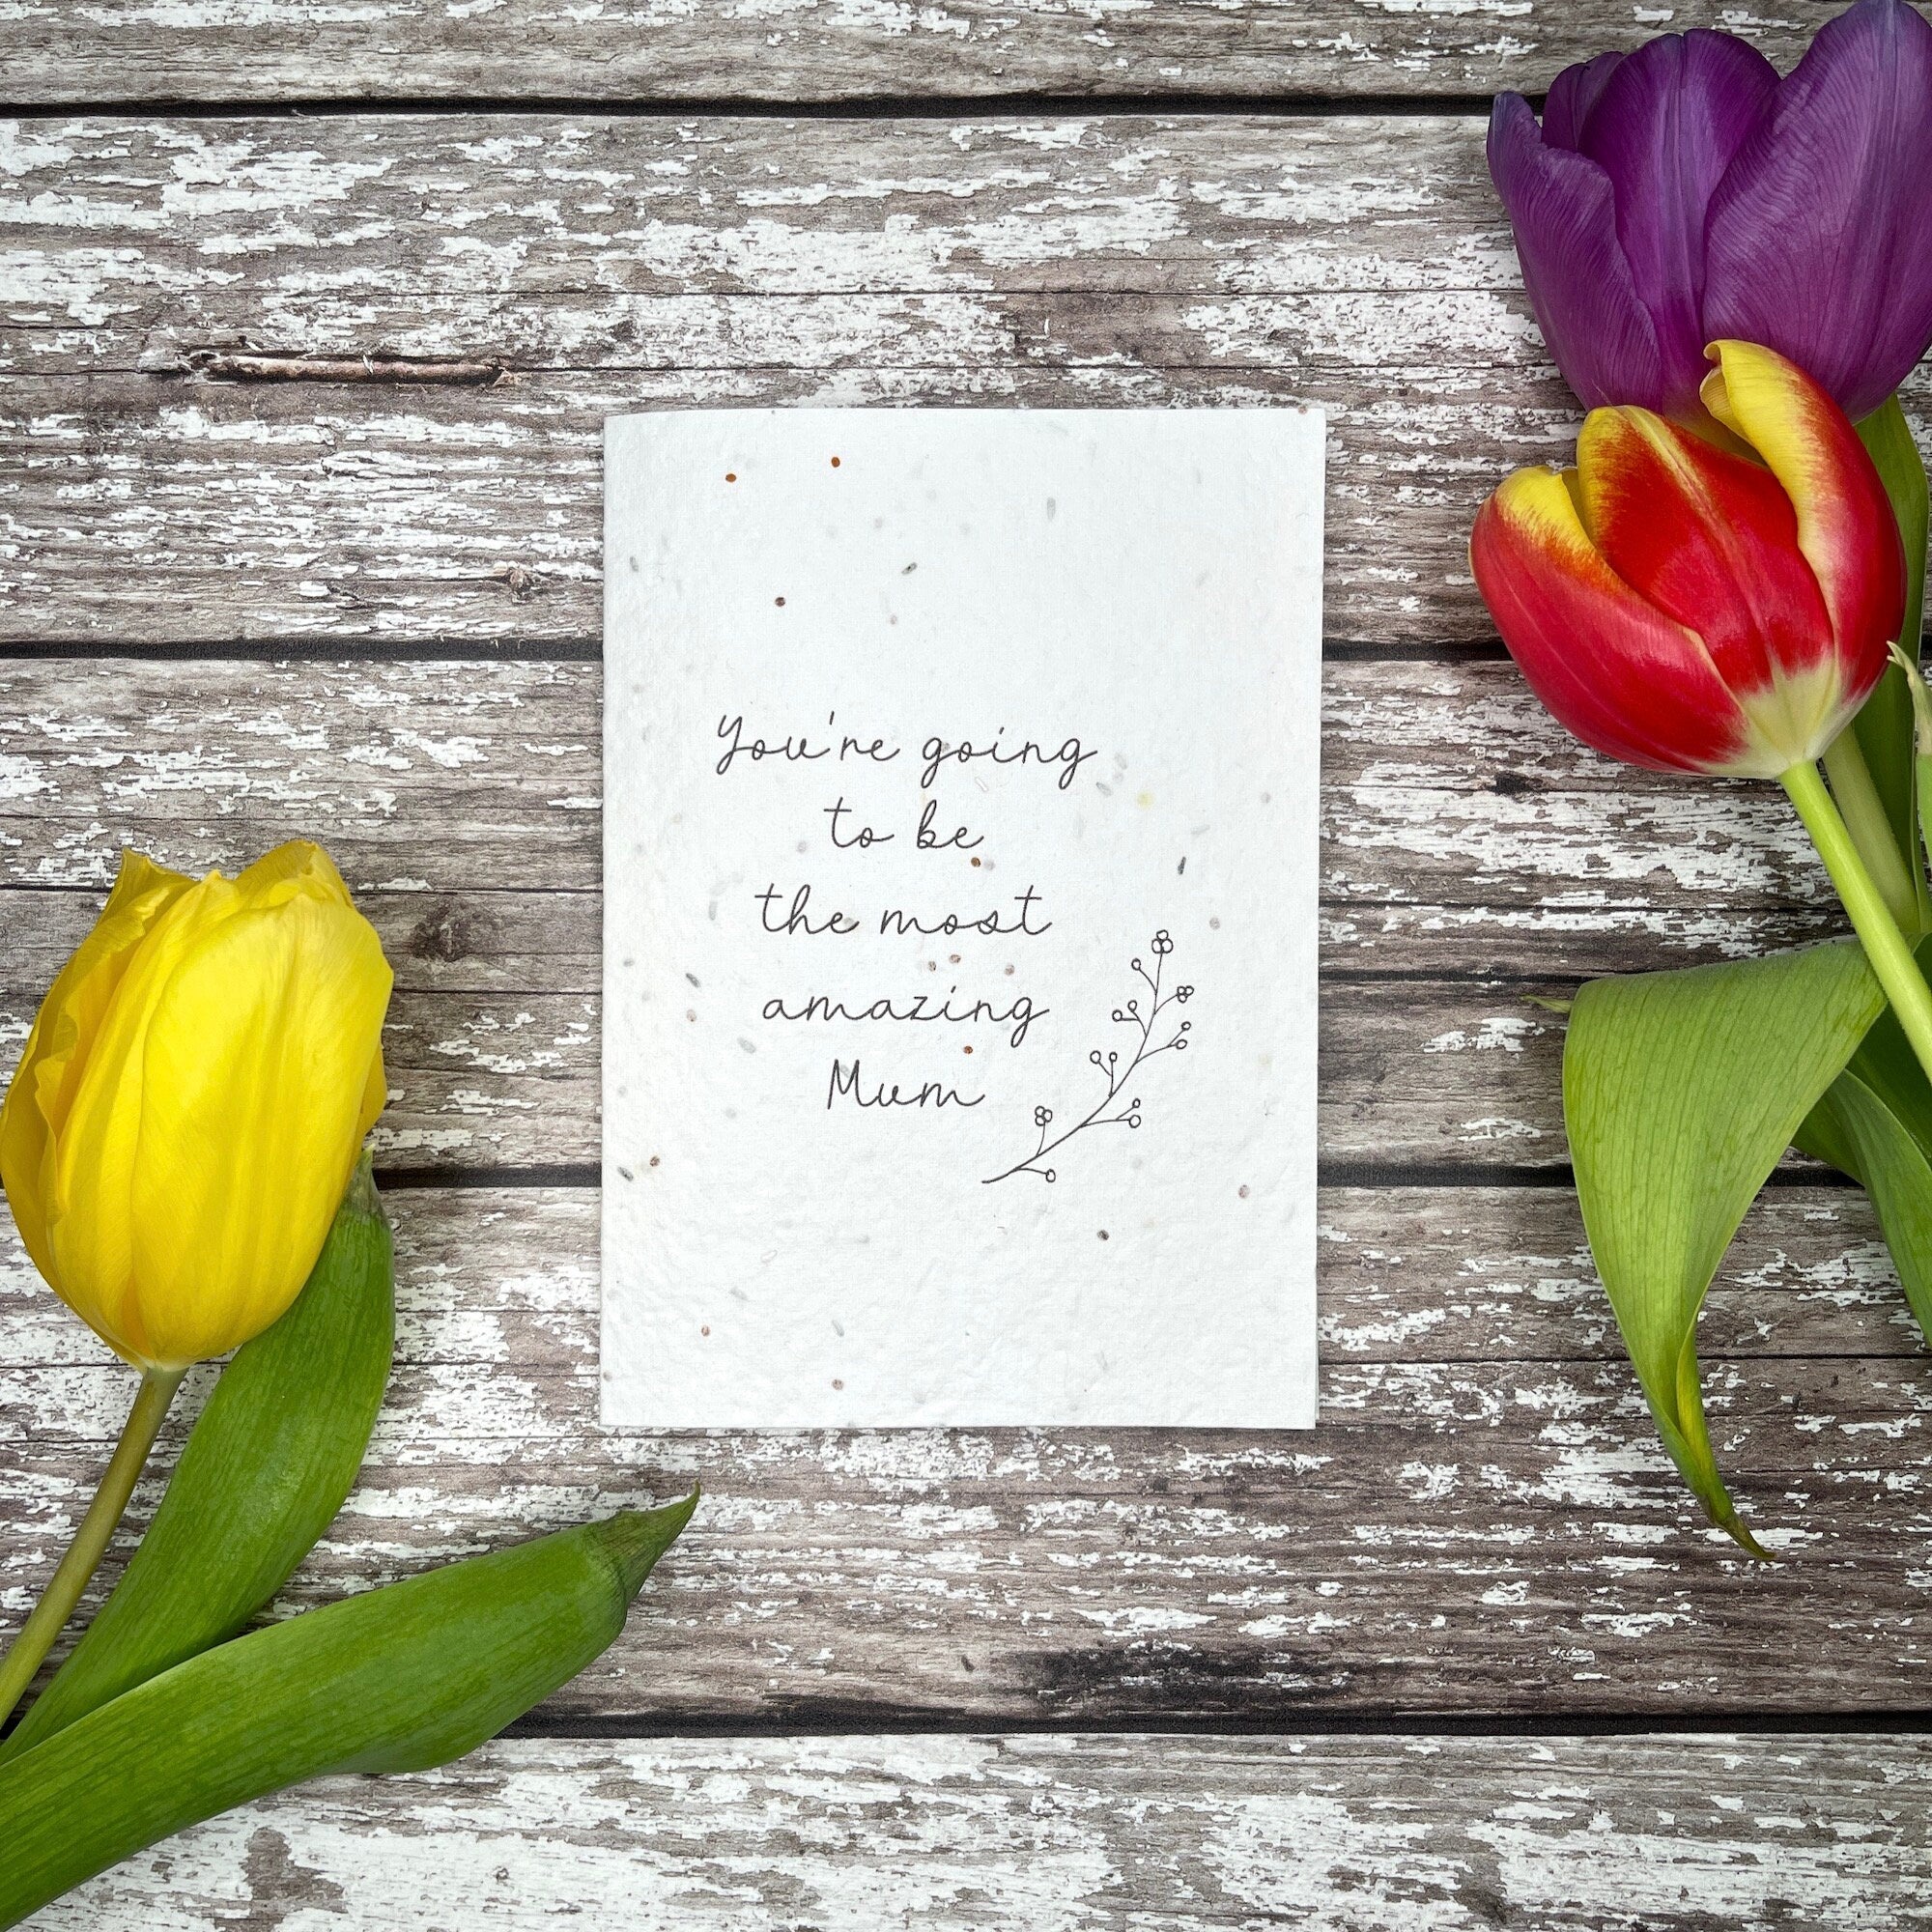 You're going
to be
the most
amazing
Mum